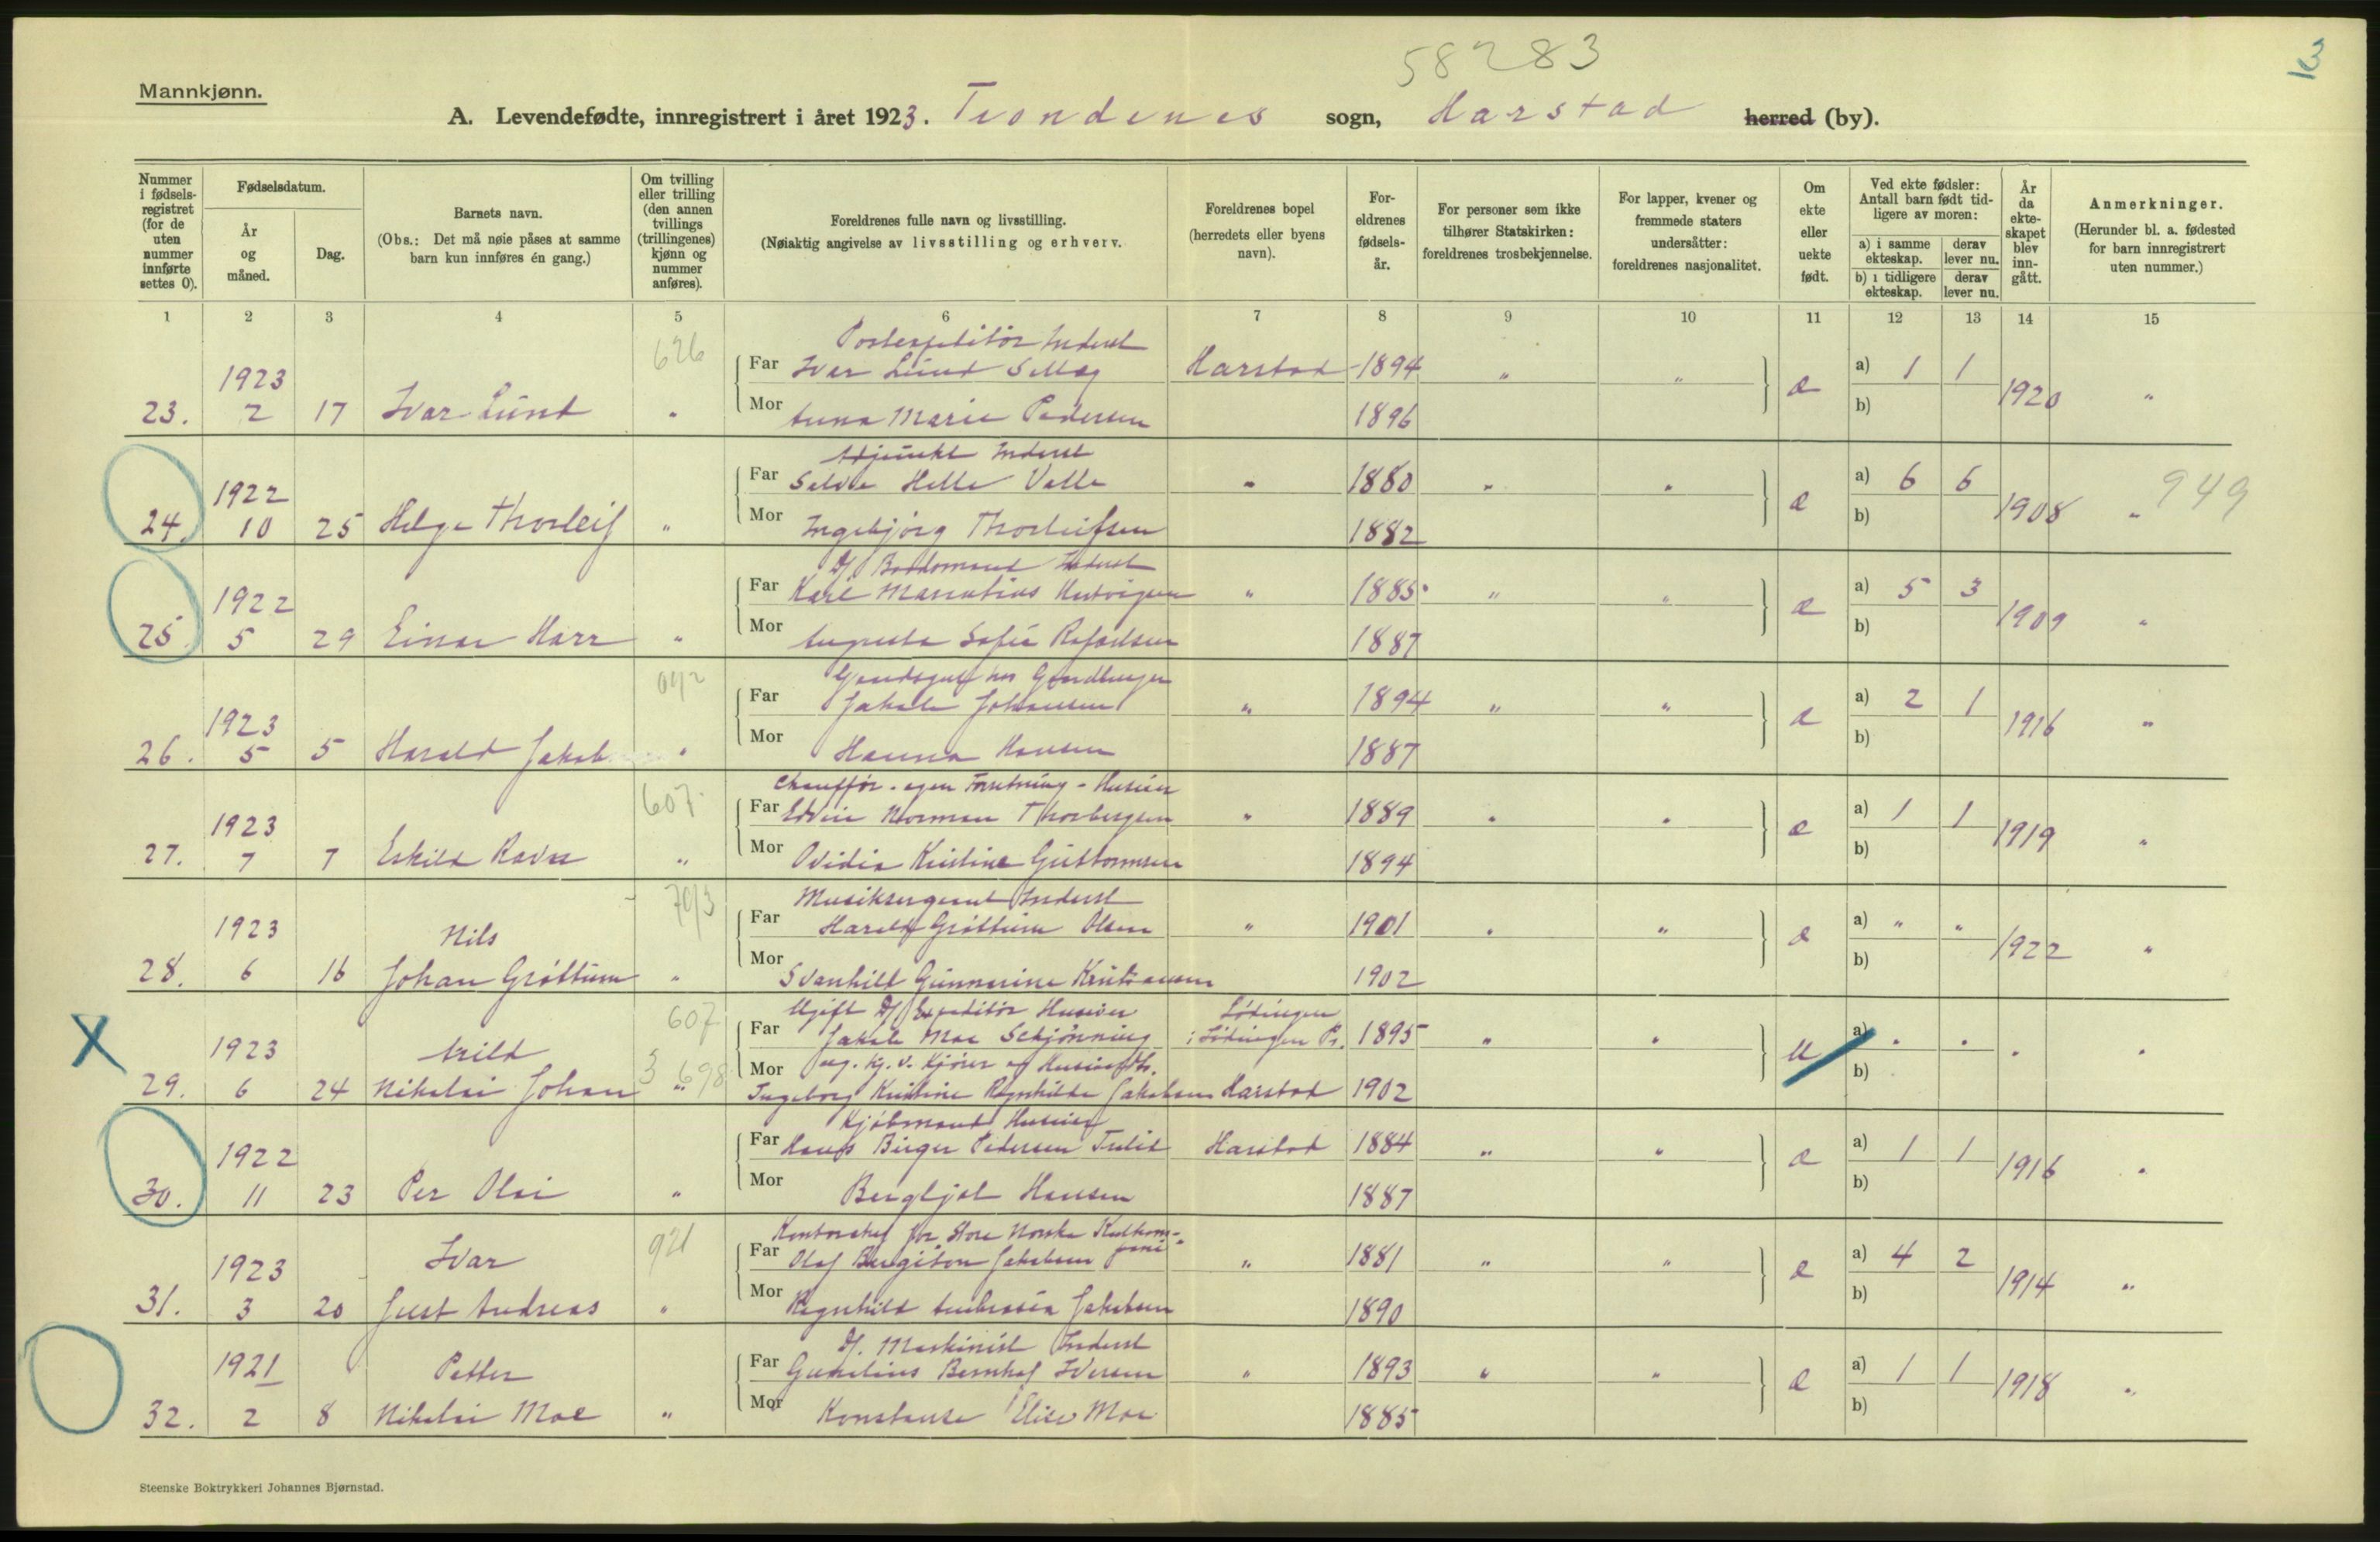 58283
Mannkjønn.
A. Levendefødte, innregistrert i året 1923. Trondenes sogn, Harstad herred (by).
Nummer i fødselsregistret (for de uten nummer innførte settes 0).
Fødselsdatum.
År og måned.
Dag.
Barnets navn.
(Obs.: Det må nøie påses at samme barn kun innføres én gang.)
Om tvilling eller trilling (den annen tvillings (trillingenes) kjønn og nummer anføres).
Foreldrenes fulle navn og livsstilling.
(Nøiaktig angivelse av livsstilling og erhverv.
Foreldrenes bopel (herredets eller byens navn).
Foreldrenes fødselsår.
For personer som ikke tilhører Statskirken: foreldrenes trosbekjennelse.
For lapper, kvener og fremmede staters undersåtter: foreldrenes nasjonalitet.
Om ekte eller uekte født.
Ved ekte fødsler: Antall barn født tidligere av moren:
a) i samme ekteskap. derav lever nu.
b) i tidligere ekteskap. derav lever nu.
År da ekteskapet blev inngått.
Anmerkninger.
(Herunder bl. a. fødested for barn innregistrert uten nummer.)
1 2 3 4 5 6 7 8 9 10 11 12 13 14 15
626 Postexpeditör Inderst
1923 Far Ivar Lund Harstad 1894 " " æ a) 1 1 1920 "
23. 2 17 Ivar Lund " Mor Anna Marie Pedersen 1896 b)
Adjunkt Inderst
1922 Far Helle Valle " 1880 " " æ a) 6 6 1908 " 949
24. 10 25 Helge Thorleif " Mor Ingebjørg Thorleifsen 1882 b)
Inderst
1922 Far Karl " 1885 " " æ a) 5 3 1909 "
25. 5 29 Einar Harr " Mor Augusta Sofie Rafaelsen 1887 b)
1923 Far Jakob Johansen " 1894 " " æ a) 2 1 1916 "
26. 5 5 Harald Jakob " Mor Hanna Hansen 1887 b)
607 Chauffør - egen Forretning - Huseier
1923 Far Edvin Norman Thorbergsen " 1889 " " æ a) 1 1 1919 "
27. 7 7 Eskild Ravn " Mor Ovidia Kristine Guttormsen 1894 b)
Musiksergeant Inderst
1923 Nils Far Harald Gröttum Olsen " 1901 " " æ a) " " 1922 "
28. 6 16 Johan Gröttum " Mor Svanhild Gunnarine Kristiansen 1902 b)
607 Ugift Expeditör Huseier Lødingen
1923 Arild Far Jakob Moe Schjønning i Lødingen Pr. 1895 " " u a) " " " "
29. 6 24 Nikolai Johan 3 698 " Mor ug. b)
Ingeborg Kristine Ragnhilda Jakobsen Harstad 1902
Kjøbmand Huseier
1922 Far Hans Birger Pedersen Harstad 1884 " " æ a) 1 1 1916 "
30. 11 23 Per Olai " Mor Bergljot Hansen 1887 b)
921 Kontorchef for Store Norske Kulkompani
1923 Ivar Far Olaf Jakobsen " 1881 " " æ a) 4 2 1914 "
31. 3 20 Just Andreas " Mor Ragnhild Ambrosia Jakobsen 1890 b)
Maskinist Inderst
1921 Petter Far Bernhof Iversen " 1893 " " æ a) 1 1 1918 "
32. 2 8 Nikolai Moe " Mor Konstanse Elise Moe 1885 b)
Steenske Boktrykkeri Johannes Bjørnstad.